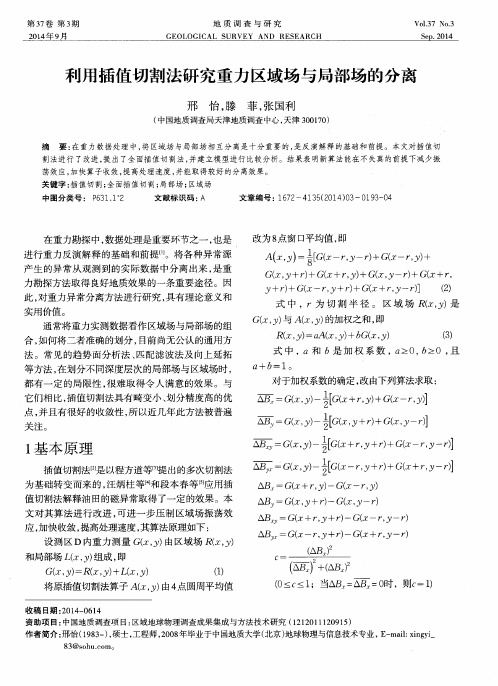 第37卷 第3期
2014年9月
地 质 调 查 与 研 究
GEOLOGICAL SURVEY AND RESEARCH
Vol.37 No.3
Sep. 2014
利用插值切割法研究重力区域场与局部场的分离
邢 怡,滕 菲,张国利
(中国地质调查局天津地质调查中心,天津 300170)
摘 要:在重力数据处理中,将区域场与局部场相互分离是十分重要的,是反演解释的基础和前提。本文对插值切
割法进行了改进,提出了全面插值切割法,并建立模型进行比较分析。结果表明新算法能在不失真的前提下减少振
荡效应,加快算子收敛,提高处理速度,并能取得较好的分离效果。
关键字:插值切割;全面插值切割;局部场;区域场
中图分类号: P631.1+2 文献标识码:A 文章编号:1672-4135(2014)03-0193-04
在重力勘探中,数据处理是重要环节之一,也是
进行重力反演解释的基础和前提[1]。将各种异常源
产生的异常从观测到的实际数据中分离出来,是重
力勘探方法取得良好地质效果的一条重要途径。因
此,对重力异常分离方法进行研究,具有理论意义和
实用价值。
通常将重力实测数据看作区域场与局部场的组
合,如何将二者准确的划分,目前尚无公认的通用方
法。常见的趋势面分析法、匹配滤波法及向上延拓
等方法,在划分不同深度层次的局部场与区域场时,
都有一定的局限性,很难取得令人满意的效果。与
它们相比,插值切割法具有畸变小、划分精度高的优
点,并且有很好的收敛性,所以近几年此方法被普遍
关注。
1基本原理
插值切割法[2]是以程方道等[3]提出的多次切割法
为基础转变而来的,汪炳柱等[4]和段本春等[5]应用插
值切割法解释油田的磁异常取得了一定的效果。本
文对其算法进行改进,可进一步压制区域场振荡效
应,加快收敛,提高处理速度,其算法原理如下:
设测区D内重力测量 G(x,y)由区域场 R(x,y)
和局部场 L(x,y)组成,即
G(x,y)=R(x,y)+L(x,y) (1)
将原插值切割法算子 A(x,y)由4点圆周平均值
改为8点窗口平均值,即
A(x,y)=1/8[G(x-r,y-r)+G(x-r,y)+
G(x,y+r)+G(x+r,y)+G(x,y-r)+G(x+r,
y+r)+G(x-r,y+r)+G(x+r,y-r)] (2)
式 中 , r 为 切 割 半 径 。 区 域 场 R(x,y) 是
G(x,y)与A(x,y)的加权之和,即
R(x,y)=aA(x,y)+bG(x,y) (3)
式 中 , a 和 b 是 加 权 系 数 , a≥0, b≥0 , 且
a+b=1。
对于加权系数的确定,改由下列算法求取:
△B̅x=G(x,y)-1/2[G(x+r,y)+G(x-r,y)]
△B̅y=G(x,y)-1/2[G(x,y+r)+G(x,y-r)]
△B̅xy=G(x,y)-1/2[G(x+r,y+r)+G(x-r,y-r)]
△B̅yr=G(x,y)-1/2[G(x-r,y+r)+G(x+r,y-r)]
△Bx=G(x+r,y)-G(x-r,y)
△By=G(x,y+r)-G(x,y-r)
△Bxy=G(x+r,y+r)-G(x-r,y-r)
△Byr=G(x-r,y+r)-G(x+r,y-r)
c=(△Bx)²/((△B̅x)²+(△Bx)²)
(0≤c≤1;当△Bx=△B̅x=0时,则c=1)
收稿日期:2014-0614
资助项目:中国地质调查项目:区域地球物理调查成果集成与方法技术研究(1212011120915)
作者简介:邢怡(1983-),硕士,工程师,2008年毕业于中国地质大学(北京)地球物理与信息技术专业,E-mail: xingyi_
83@sohu.com。